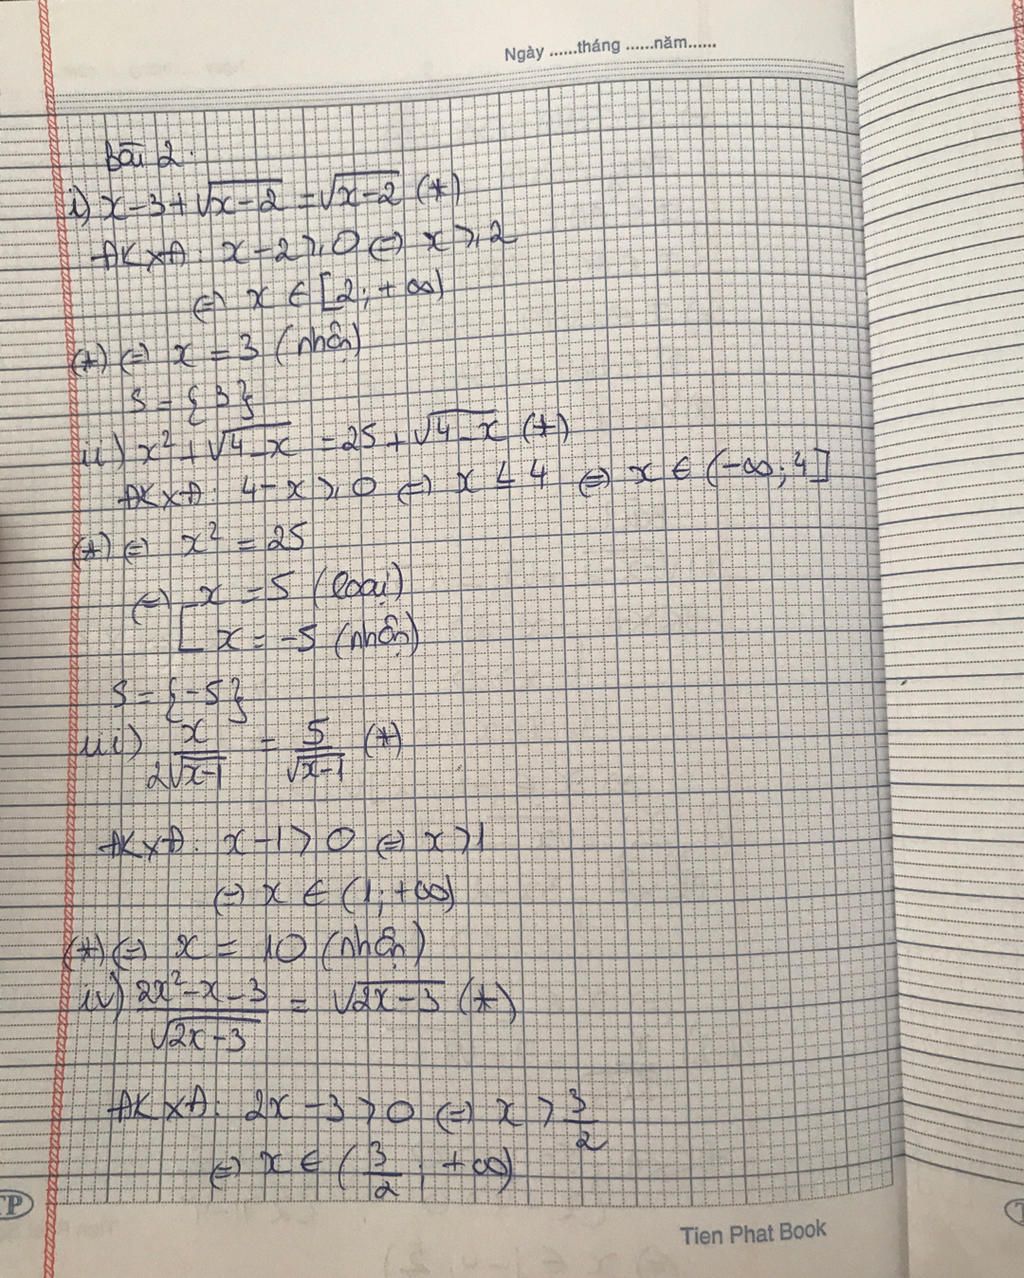 Ngày ......tháng ......năm......
Bài 2.
i) x-3+√(x-2) = √(x-2) (*)
ĐKXĐ: x-2 ≥ 0 ⇔ x ≥ 2
⇔ x ∈ [2; +∞)
(*) ⇔ x = 3 (nhận)
S = {3}
ii) x² + √(4-x) = 25 + √(4-x) (*)
ĐKXĐ: 4-x ≥ 0 ⇔ x ≤ 4 ⇔ x ∈ (-∞; 4]
(*) ⇔ x² = 25
⇔ [ x = 5 (loại)
x = -5 (nhận)
S = {-5}
iii) x/(2√(x-1)) = 5/√(x-1) (*)
ĐKXĐ: x-1 > 0 ⇔ x > 1
⇔ x ∈ (1; +∞)
(*) ⇔ x = 10 (nhận)
iv) (2x²-x-3)/√(2x-3) = √(2x-3) (*)
ĐKXĐ: 2x-3 > 0 ⇔ x > 3/2
⇔ x ∈ (3/2; +∞)
TP
Tien Phat Book